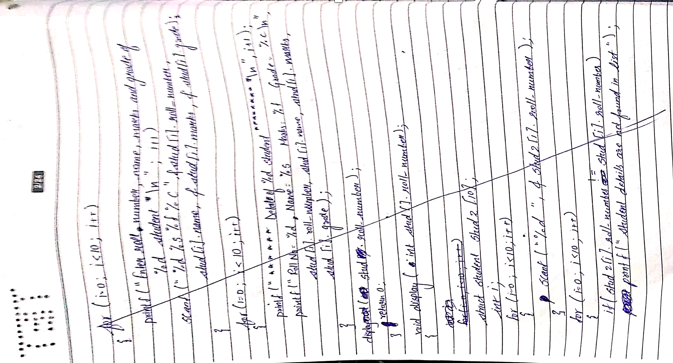 for (i=0; i<10; i++)
{
printf ("Enter roll number, name, marks and grade of
%d student "\n"; i+1)
scanf (" %d %s %d %c", & stud [i]. roll-number,
stud [i]. name, & stud [i]. marks, & stud [i]. grade);
}
for (i=0; i<10; i++)
{
printf (" ****** Details of %d student ******* "\n", i+1);
printf (" Roll No: %d, Name: %s Marks: %d Grade: %c \n",
stud [i]. roll-number, stud [i]. name, stud [i]. marks,
stud [i]. grade);
}
display ( stud . roll. number);
return 0;
}
void display ( int stud [i]. roll. number);
{
struct student stud 2 [10];
int i;
for (i=0; i<10; i++)
{
scanf (" %d", & stud 2 [i]. roll-number);
}
for (i=0; i<10; i++)
{
if ( stud 2 [i]. roll-number != stud [i]. roll-number)
printf (" student details are not found in list ");